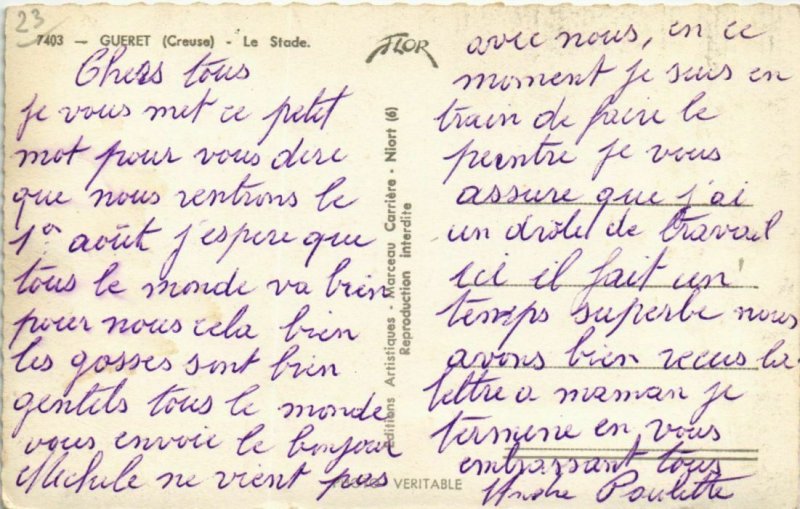 23
7403 — GUERET (Creuse) - Le Stade.
FLOR
Chers tous
je vous met ce petit
mot pour vous dire
que nous rentrons le
1er août j'espere que
tous le monde va bien
pour nous cela bien
les gosses sont bien
gentils tous le monde
vous envoie le bonjour
Michele ne vient pas
Editions Artistiques - Marceau Carrière - Niort (6)
Reproduction interdite
PHOTO VERITABLE
avec nous, en ce
moment je suis en
train de faire le
peintre je vous
assure que j'ai
un drôle de travail
ici il fait un
temps superbe nous
avons bien recus la
lettre a maman je
termine en vous
embrassant tous
Andre Paulette